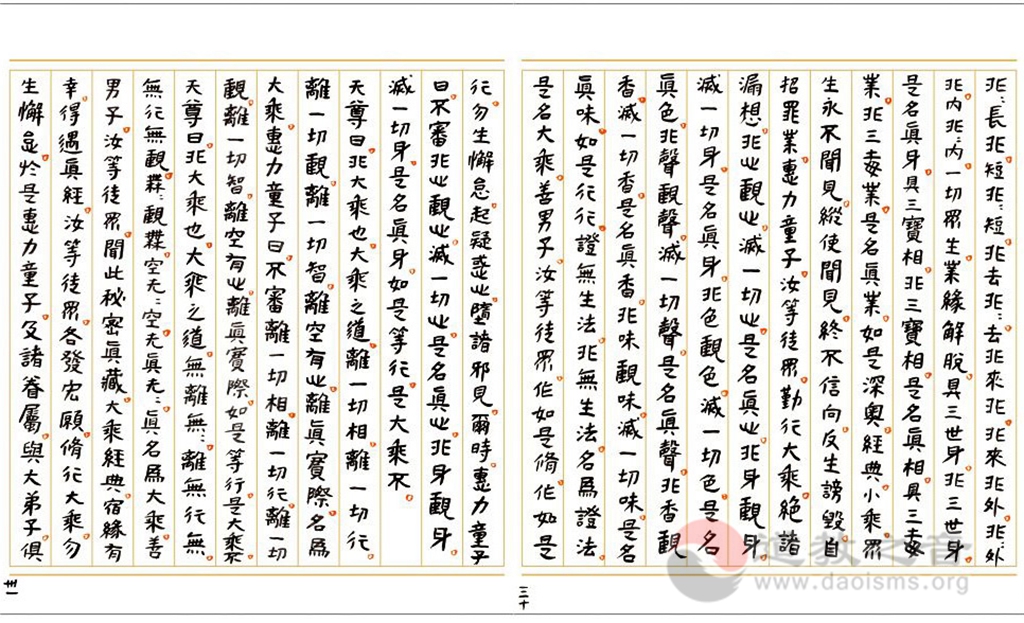 非〻長非短非〻短非去非〻去非來非非來非外非〻外
非内非〻内一切眾生業緣解脫具三世身非三世身
是名眞身具三寶相非三寶相是名眞相具三毒
業非三毒業是名眞業如是深奧經典小乘眾
生永不聞見縱使聞見終不信向反生謗毀自
招罪業惠力童子汝等徒眾勤行大乘絶諸
漏想非心觀心滅一切心是名眞心非身觀身
滅一切身是名眞身非色觀色滅一切色是名
眞色非聲觀聲滅一切聲是名眞聲非香觀
香滅一切香是名眞香非味觀味滅一切味是名
眞味如是行行證無生法非無生法名爲證法
是名大乘善男子汝等徒眾作如是脩作如是
三十
行勿生懈怠起疑惑心墮諸邪見爾時惠力童子
曰不審非心觀心滅一切心是名眞心非身觀身
滅一切身是名眞身如是等行是大乘不
天尊曰非大乘也大乘之道離一切相離一切行
離一切觀離一切智離空有心離眞實際名爲
大乘惠力童子曰不審離一切相離一切行離一切
觀離一切智離空有心離眞實際如是等行是大乘不
天尊曰非大乘也大乘之道無離無〻離無行無
無行無觀無〻觀無空无〻空无眞无〻眞名爲大乘善
男子汝等徒眾聞此秘密眞藏大乘經典宿緣有
幸得遇眞經汝等徒眾各發宏願脩行大乘勿
生懈怠於是惠力童子及諸眷屬與大弟子俱
卅一
道教之音
www.daoisms.org